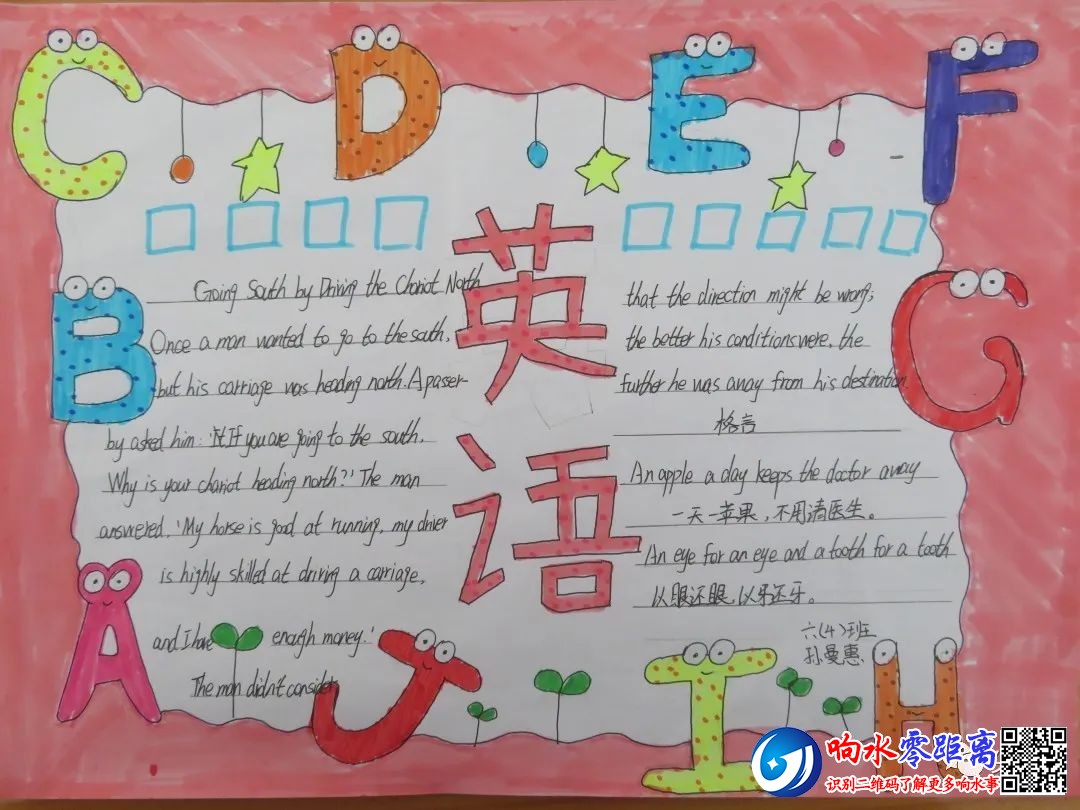 C D E F
Going South by Driving the Chariot North
Once a man wanted to go to the south,
but his carriage was heading north. A passer-
by asked him: 'It If you are going to the south.
Why is your chariot heading north?' The man
answered. 'My horse is good at running, my driver
is highly skilled at driving a carriage,
and I have enough money.'
The man didn't consider
英
语
that the direction might be wrong;
the better his conditions were, the
further he was away from his destination.
格言
An apple a day keeps the doctor away
一天一苹果，不用请医生。
An eye for an eye and a tooth for a tooth
以眼还眼，以牙还牙。
六(4)班
孙曼惠
B G
A J I H
响水零距离
识别二维码了解更多响水事